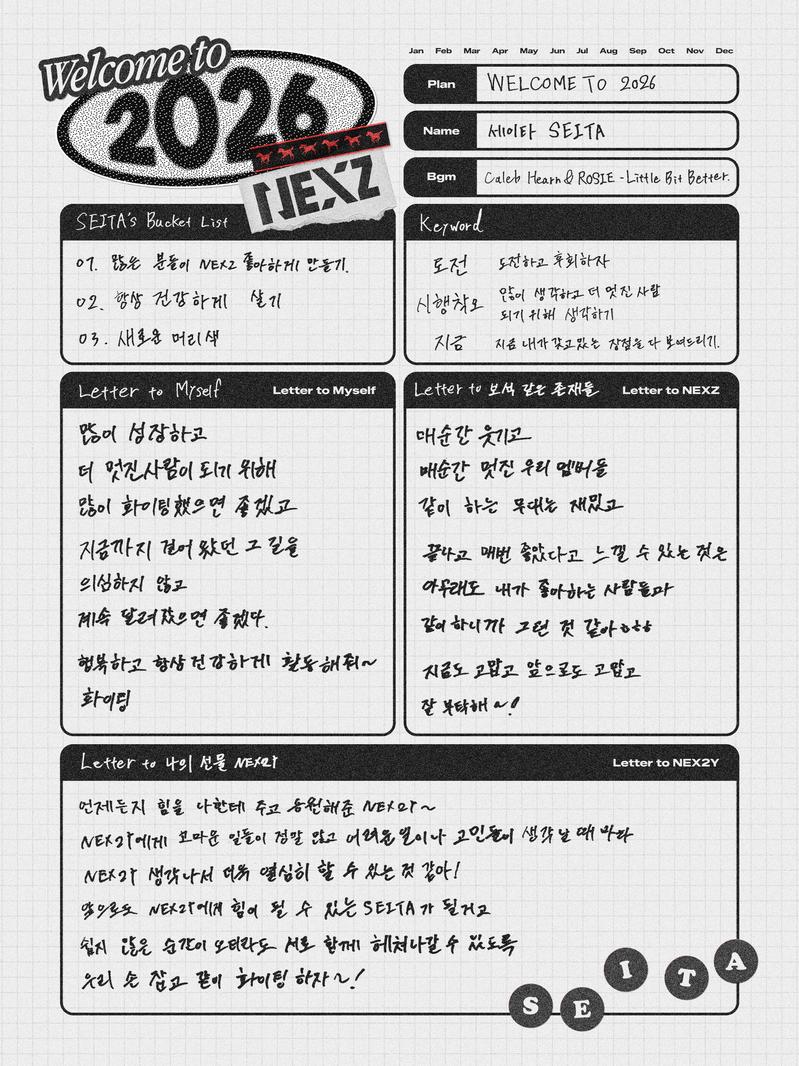 Welcome to
2026
NEXZ
Jan Feb Mar Apr May Jun Jul Aug Sep Oct Nov Dec
Plan WELCOME TO 2026
Name 세이타 SEITA
Bgm Caleb Hearn & ROSIE - Little Bit Better.
SEITA's Bucket List
01. 많은 분들이 NEXZ 좋아하게 만들기.
02. 항상 건강하게 살기
03. 새로운 머리색
Keyword
도전 도전하고 후회하자
시행착오 많이 생각하고 더 멋진 사람
되기 위해 생각하기
지금 지금 내가 갖고있는 장점을 다 보여드리기.
Letter to Myself Letter to Myself
많이 성장하고
더 멋진사람이 되기 위해
많이 화이팅했으면 좋겠고
지금까지 걸어왔던 그 길을
의심하지 않고
계속 달려갔으면 좋겠다.
행복하고 항상 건강하게 활동해줘~
화이팅
Letter to 보석 같은 존재들 Letter to NEXZ
매순간 웃기고
매순간 멋진 우리 멤버들
같이 하는 무대는 재밌고
끝나고 매번 좋았다고 느낄 수 있는 것은
아무래도 내가 좋아하는 사람들과
같이 하니까 그런 것 같아ㅎㅎㅎ
지금도 고맙고 앞으로도 고맙고
잘 부탁해~!
Letter to 나의 선물 NEX2Y Letter to NEX2Y
언제든지 힘을 나한테 주고 응원해준 NEX2Y~
NEX2Y에게 고마운 일들이 정말 많고 어려운 일이나 고민들이 생각날 때마다
NEX2Y 생각나서 더욱 열심히 할 수 있는 것 같아!
앞으로도 NEX2Y에게 힘이 될 수 있는 SEITA가 될거고
쉽지 않은 순간이 오더라도 서로 함께 헤쳐나갈 수 있도록
우리 손 잡고 같이 화이팅 하자~!
SEITA